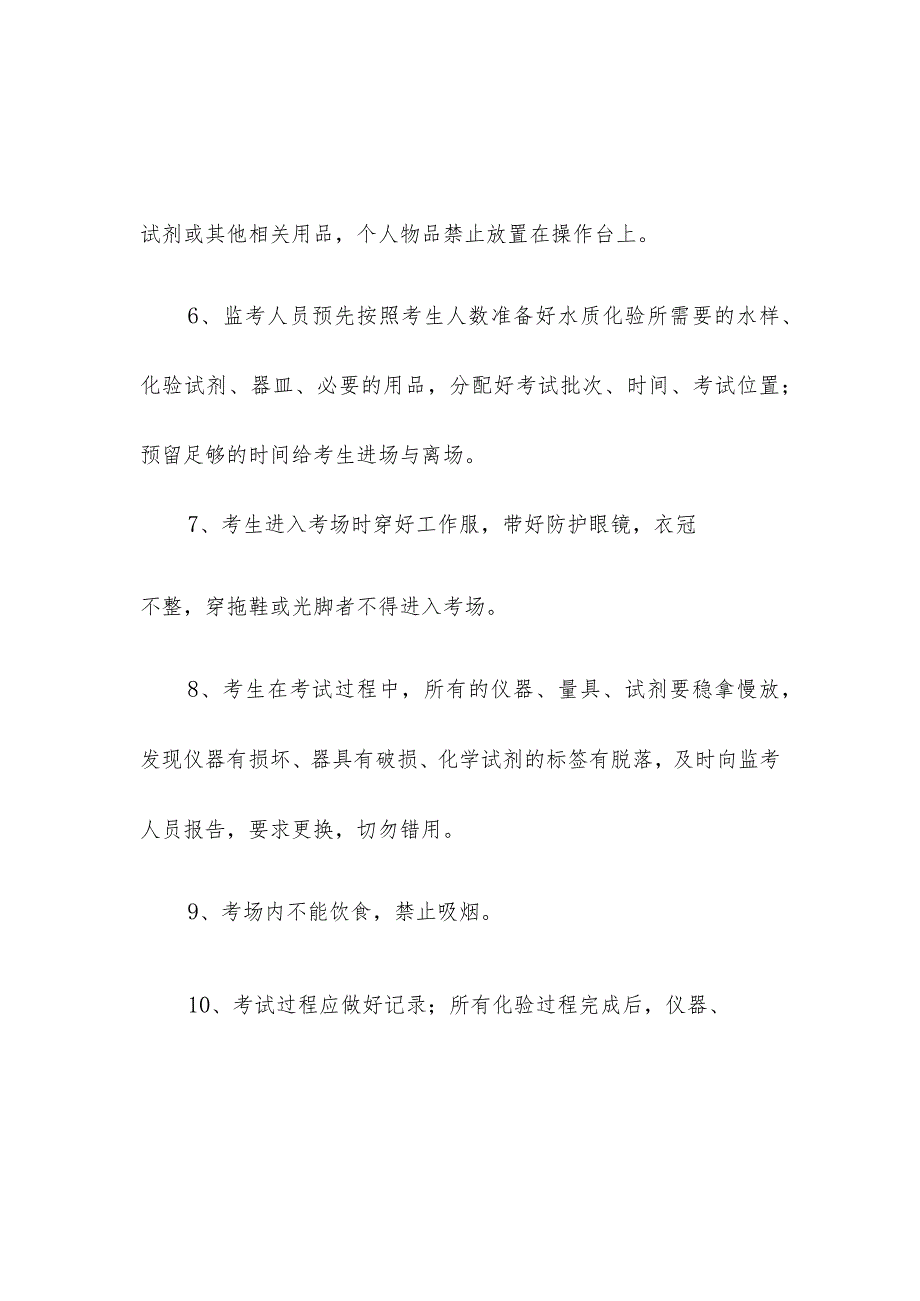 试剂或其他相关用品，个人物品禁止放置在操作台上。
6、监考人员预先按照考生人数准备好水质化验所需要的水样、
化验试剂、器皿、必要的用品，分配好考试批次、时间、考试位置；
预留足够的时间给考生进场与离场。
7、考生进入考场时穿好工作服，带好防护眼镜，衣冠
不整，穿拖鞋或光脚者不得进入考场。
8、考生在考试过程中，所有的仪器、量具、试剂要稳拿慢放，
发现仪器有损坏、器具有破损、化学试剂的标签有脱落，及时向监考
人员报告，要求更换，切勿错用。
9、考场内不能饮食，禁止吸烟。
10、考试过程应做好记录；所有化验过程完成后，仪器、